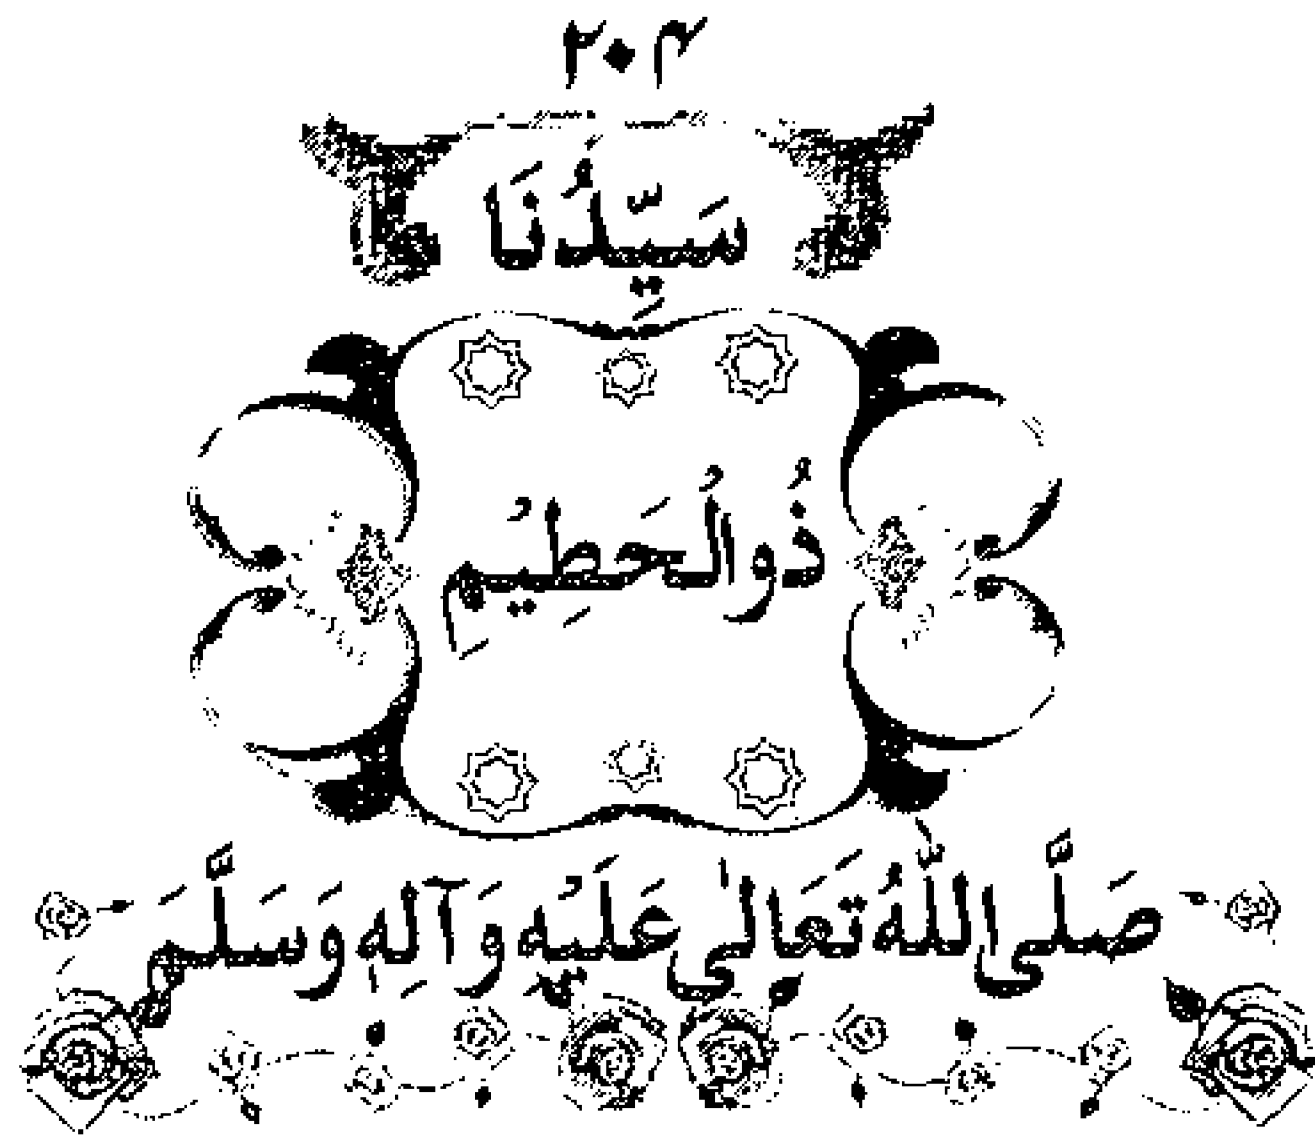 ۲۰۴
سَیِّدُنَا
ذُوالْحَطِیْمِ
صَلَّی اللّٰهُ تَعَالٰی عَلَیْهِ وَآلِهٖ وَسَلَّمَ